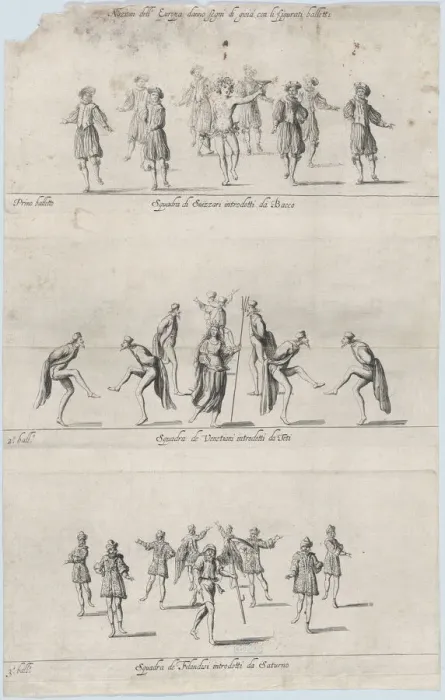 Nazioni dell' Europa danno segni di gioia con li figurati balletti
Primo balletto Squadra di Suizzari introdotti da Bacco
2.º ball.º Squadra de Venetiani introdotti da Teti
3.º ball.º Squadra de Filandesi introdotti da Saturno